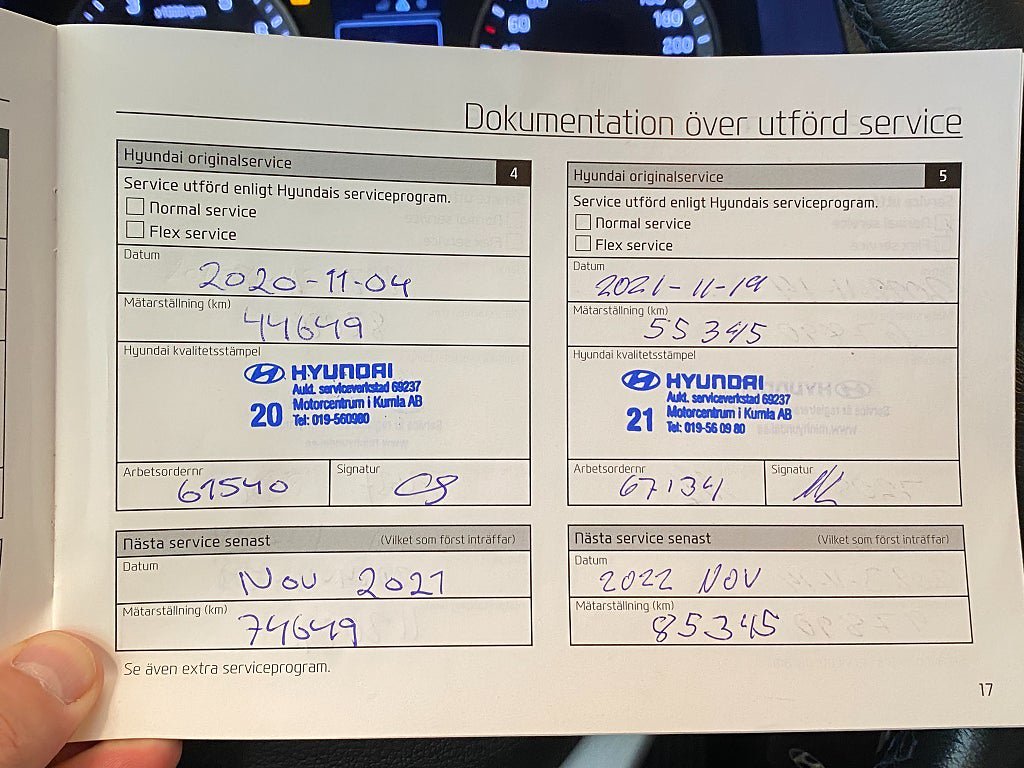 Dokumentation över utförd service
Hyundai originalservice 4
Service utförd enligt Hyundais serviceprogram.
Normal service
Flex service
Datum
2020-11-04
Mätarställning (km)
44649
Hyundai kvalitetsstämpel
HYUNDAI
Aukt. serviceverkstad 69237
20 Motorcentrum i Kumla AB
Tel: 019-560980
Arbetsordernr
61540
Signatur
Nästa service senast (Vilket som först inträffar)
Datum
Nov 2021
Mätarställning (km)
74649
Se även extra serviceprogram.
Hyundai originalservice 5
Service utförd enligt Hyundais serviceprogram.
Normal service
Flex service
Datum
2021-11-19
Mätarställning (km)
55345
Hyundai kvalitetsstämpel
HYUNDAI
Aukt. serviceverkstad 69237
21 Motorcentrum i Kumla AB
Tel: 019-56 09 80
Arbetsordernr
67134
Signatur
Nästa service senast (Vilket som först inträffar)
Datum
2022 NOV
Mätarställning (km)
85345
17